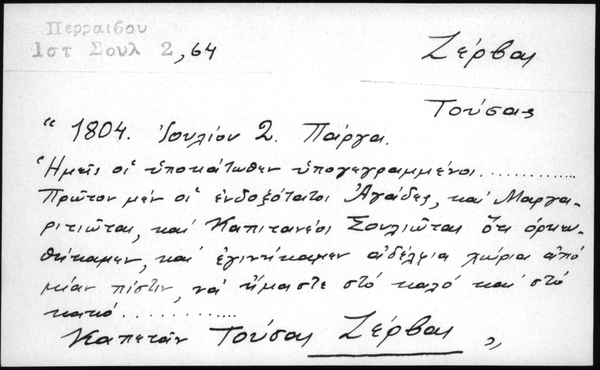 Περραιβου
Ιστ Σουλ 2, 64
Ζέρβας
Τούσας
“ 1804. Ἰουλίου 2. Πάργα.
Ἡμεῖς οἱ ὑποκάτωθεν ὑπογεγραμμένοι............
Πρῶτον μέν οἱ ἐνδοξότατοι Ἀγάδες, καί Μαργα-
ριτιῶται, καί Καπιτανέοι Σουλιῶται ὅτι ὁρκω-
θήκαμεν, καί ἐγινήκαμεν ἀδέλφια χώρια ἀπό
μίαν πίστιν, νά ἤμαστε στό καλό καί στό
κακό..............
Καπετάν Τούσας Ζέρβας „